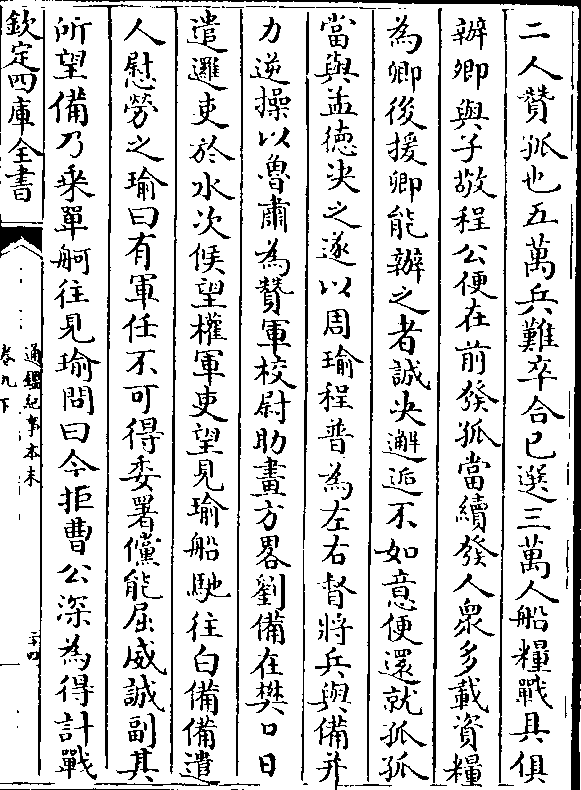 二人贊孤也五萬兵難卒合已選三萬人船糧戰具俱
辦卿與子敬程公便在前發孤當續發人衆多載資糧
為卿後援卿能辦之者誠決邂逅不如意便還就孤孤
當與孟德決之遂以周瑜程普為左右督將兵與備并
力逆操以魯肅為贊軍校尉助畫方畧劉備在樊口日
遣邏吏於水次候望權軍吏望見瑜船馳往白備備遣
人慰勞之瑜曰有軍任不可得委署儻能屈威誠副其
所望備乃乗單舸往見瑜問曰今拒曹公深為得計戰
欽定四庫全書
通鑑紀事本末
卷九下
三四